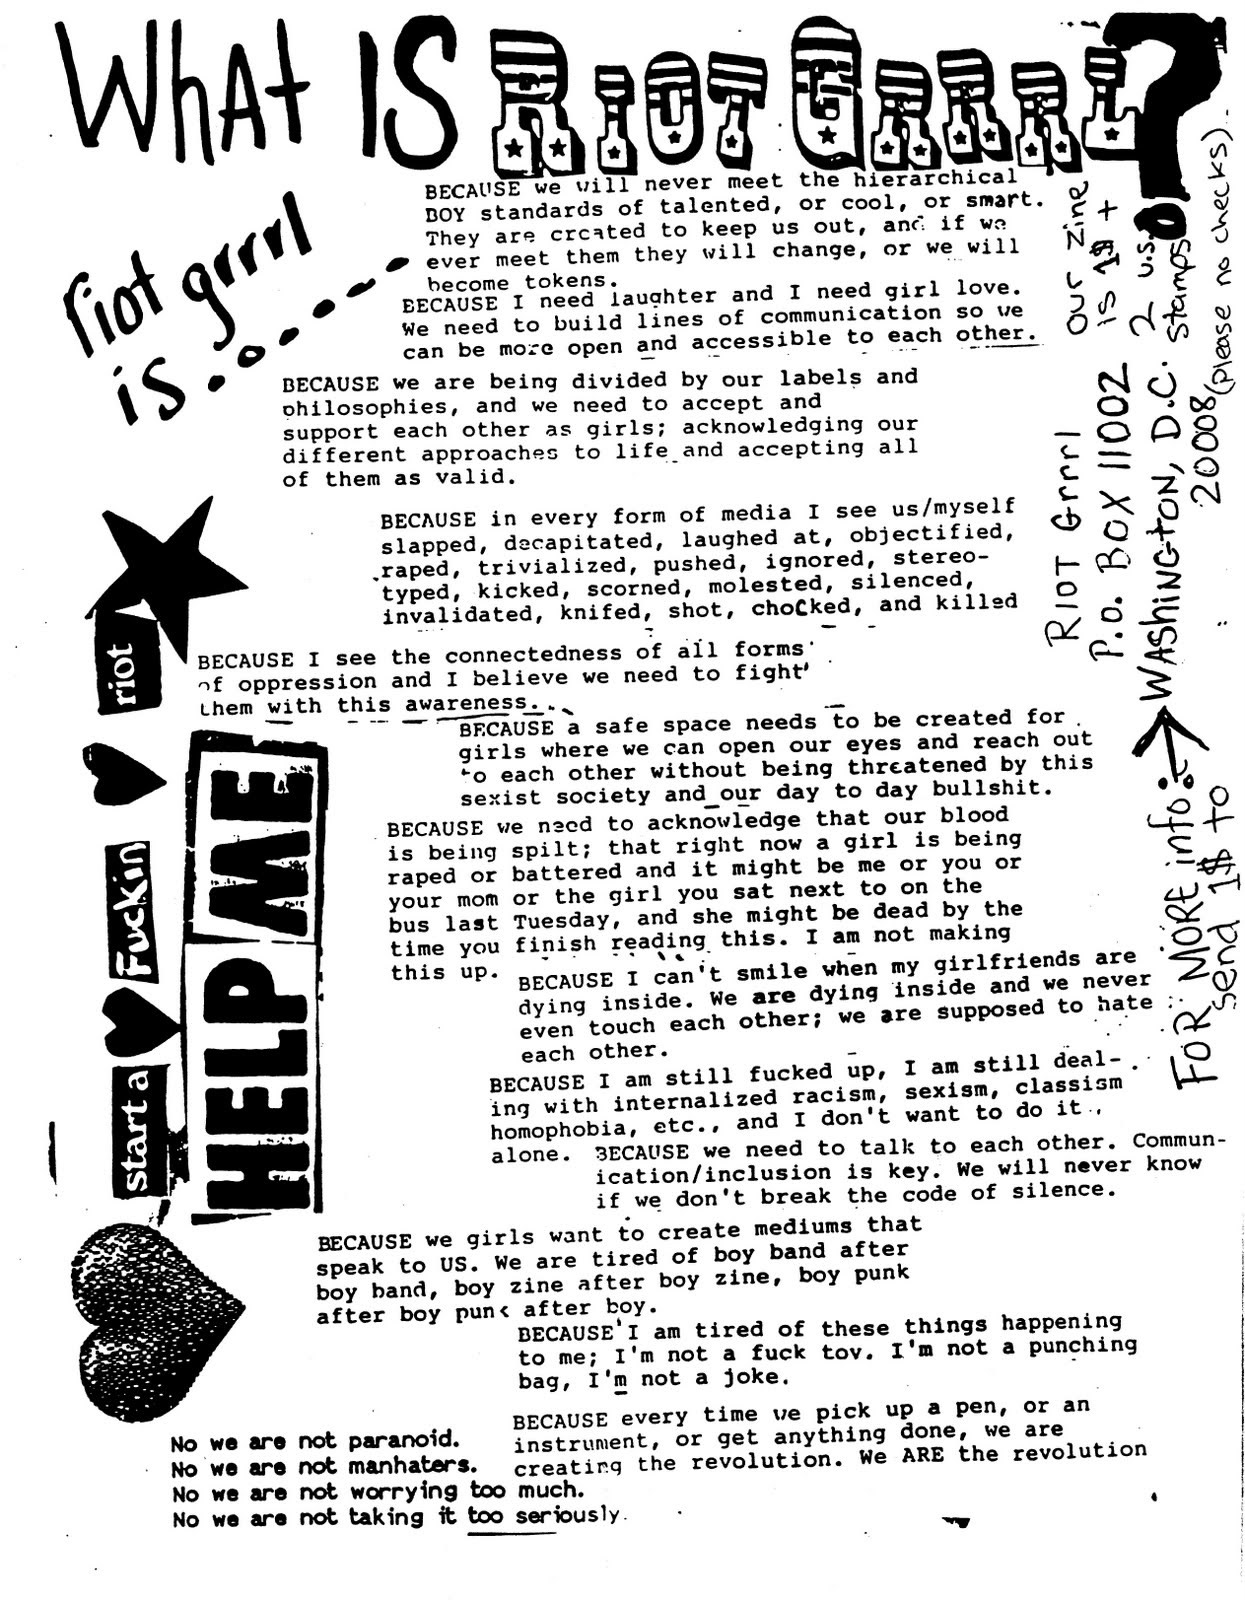 WhAt IS RIOT GRRRL?
riot grrrl
is.....
BECAUSE we will never meet the hierarchical
BOY standards of talented, or cool, or smart.
They are created to keep us out, and if we
ever meet them they will change, or we will
become tokens.
BECAUSE I need laughter and I need girl love.
We need to build lines of communication so we
can be more open and accessible to each other.
BECAUSE we are being divided by our labels and
philosophies, and we need to accept and
support each other as girls; acknowledging our
different approaches to life and accepting all
of them as valid.
BECAUSE in every form of media I see us/myself
slapped, decapitated, laughed at, objectified,
raped, trivialized, pushed, ignored, stereo-
typed, kicked, scorned, molested, silenced,
invalidated, knifed, shot, choCked, and killed
BECAUSE I see the connectedness of all forms
of oppression and I believe we need to fight
them with this awareness...
BECAUSE a safe space needs to be created for
girls where we can open our eyes and reach out
to each other without being threatened by this
sexist society and our day to day bullshit.
BECAUSE we need to acknowledge that our blood
is being spilt; that right now a girl is being
raped or battered and it might be me or you or
your mom or the girl you sat next to on the
bus last Tuesday, and she might be dead by the
time you finish reading this. I am not making
this up.
BECAUSE I can't smile when my girlfriends are
dying inside. We are dying inside and we never
even touch each other; we are supposed to hate
each other.
BECAUSE I am still fucked up, I am still deal-
ing with internalized racism, sexism, classism
homophobia, etc., and I don't want to do it
alone.
BECAUSE we need to talk to each other. Commun-
ication/inclusion is key. We will never know
if we don't break the code of silence.
BECAUSE we girls want to create mediums that
speak to US. We are tired of boy band after
boy band, boy zine after boy zine, boy punk
after boy punk after boy.
BECAUSE I am tired of these things happening
to me; I'm not a fuck toy. I'm not a punching
bag, I'm not a joke.
BECAUSE every time we pick up a pen, or an
instrument, or get anything done, we are
creating the revolution. We ARE the revolution
No we are not paranoid.
No we are not manhaters.
No we are not worrying too much.
No we are not taking it too seriously.
start a
Fuckin
riot
HELP ME
FOR MORE info:
send 1$ to
RIOT Grrrl
P.O. BOX 11002
WAShINGTON, D.C.
20008
our zine
is 1$ +
2 u.s.
stamps
(please no checks).